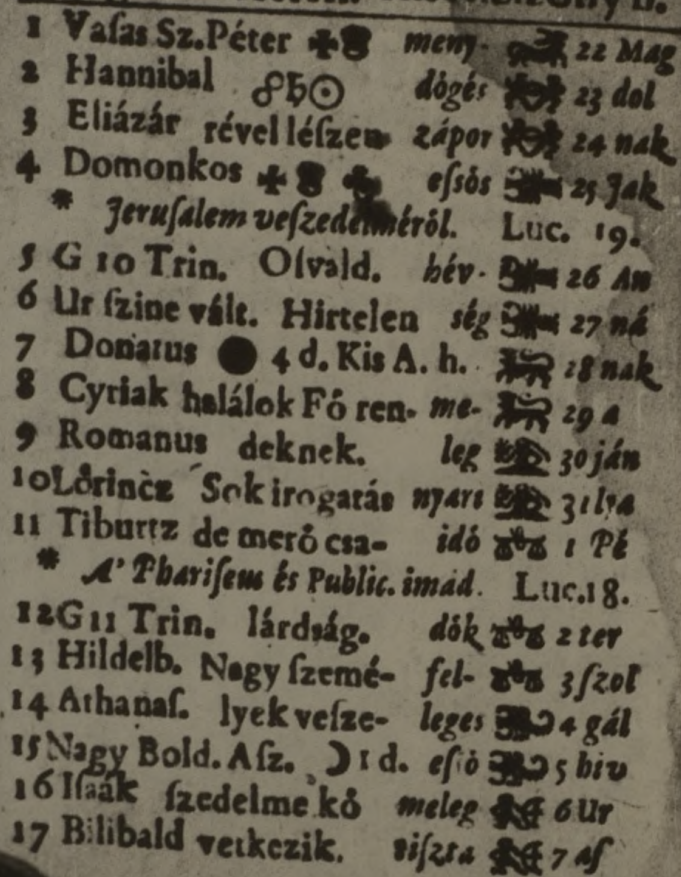 1 Vaſas Sz. Péter meny- 22 Mag
2 Hannibal ☍♄☉ dógés 23 dol
3 Eliázár révelléſzen zápor 24 nak
4 Domonkos eſsòs 25 Jak
* Jeruſalem veſzedelméról. Luc. 19.
5 G 10 Trin. Oſvald. hév- 26 An
6 Ur ſzine vált. Hirtelen ség 27 ná
7 Donatus ● 4 d. Kis A. h. 28 nak
8 Cyriak halálok Fó ren- me- 29 a
9 Romanus deknek. leg 30 ján
10 Lórincz Sok irogatás nyári 31
11 Tiburtz de meró csa- idó 1 Pé
* A' Phariſeus és Public. imád. Luc. 18.
12 G 11 Trin. lárdság. dók 2 ter
13 Hildelb. Nagy ſzemé- fel- 3 ſzol
14 Athanaſ. lyek veſze- leges 4 gál
15 Nagy Bold. Aſz. ☽ 1 d. eſsò 5 biv
16 Iſaák ſzedelme kó meleg 6 Ur
17 Bilibald vetkezik. tiſzta 7 aſ